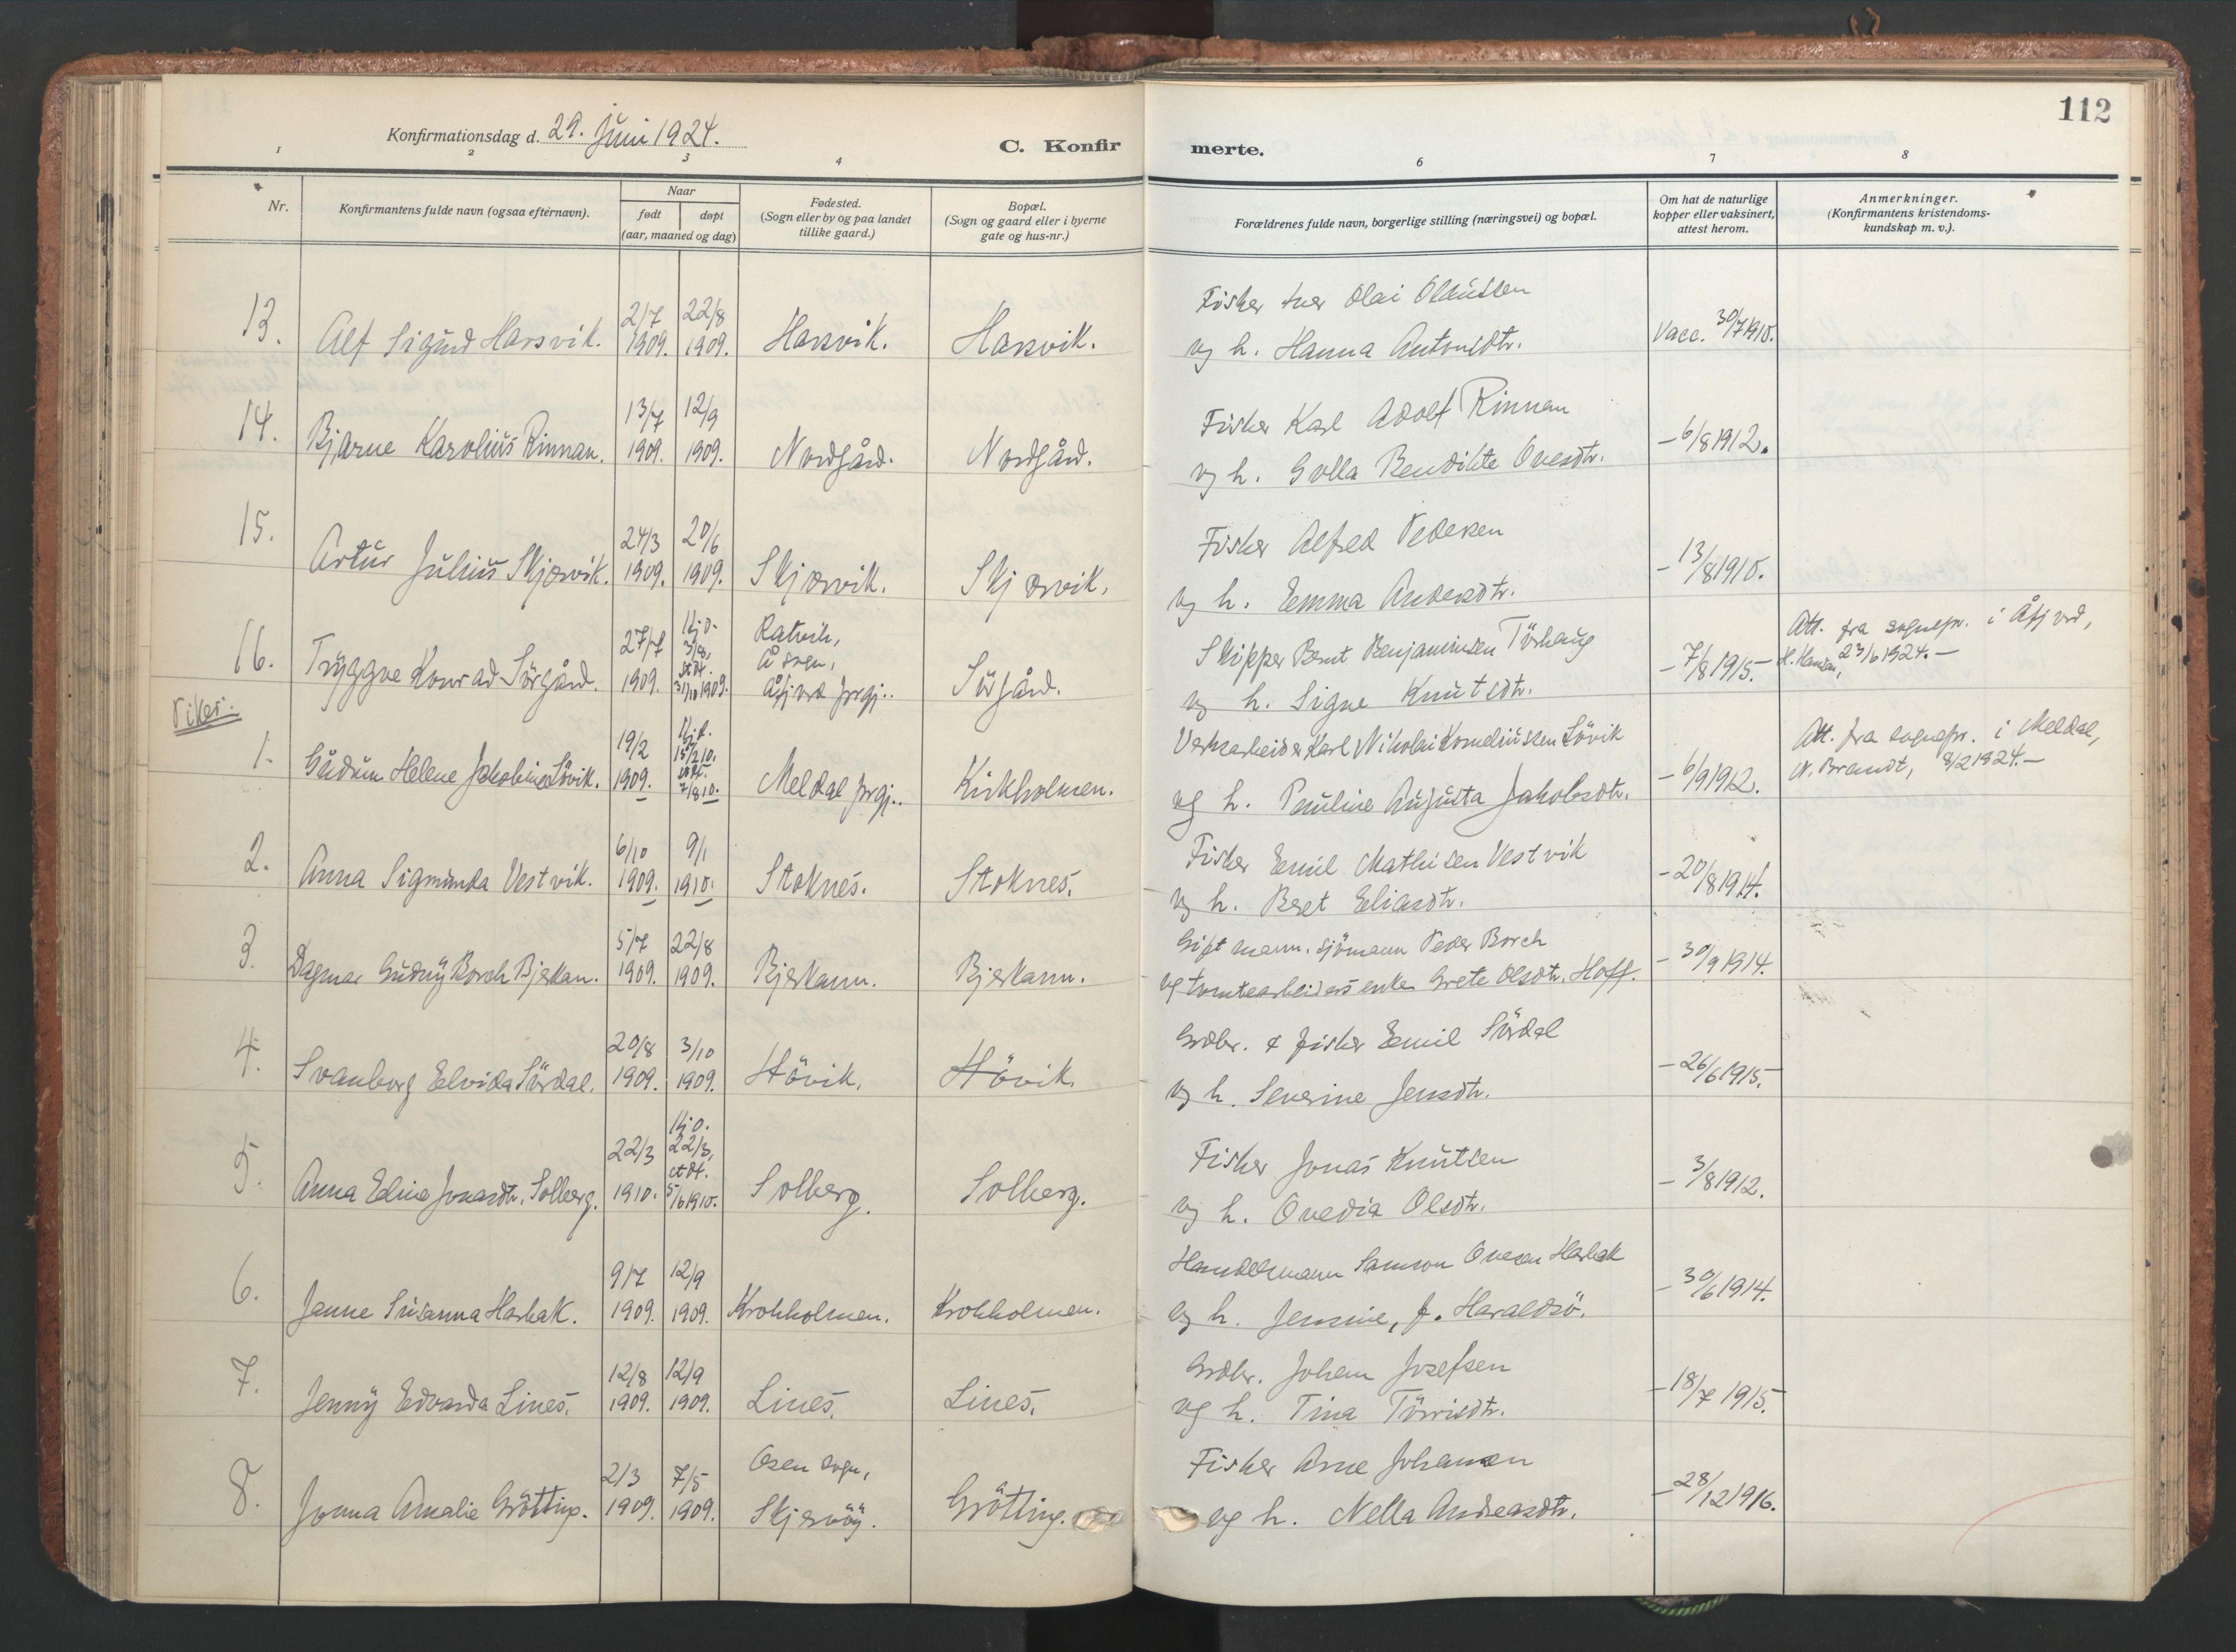 112
Konfirmationsdag d. 29. Juni 1924.
C. Konfirmerte.
1 2 3 4 6 7 8
Nr.
Konfirmantens fulde navn (ogsaa efternavn).
Naar
født døpt
(aar, maaned og dag)
Fødested.
(Sogn eller by og paa landet
tillike gaard.)
Bopæl.
(Sogn og gaard eller i byerne
gate og hus-nr.)
Forældrenes fulde navn, borgerlige stilling (næringsvei) og bopæl.
Om hat de naturlige
kopper eller vaksinert,
attest herom.
Anmerkninger.
(Konfirmantens kristendoms-
kundskap m. v.).
13. Alf Sigurd Harsvik. 2/7 1909. 22/8 1909. Harsvik. Harsvik.
Fisker Olai
og h. Hanna Antonsdtr.
Vacc. 30/7 1910.
14. Bjarne Karolius Rinnan. 13/7 1909. 12/9 1909. Nordgård. Nordgård.
Fisker Karl Adolf Rinnan
og h. Golla Bendikte Ovesdtr.
- 6/8 1912.
15. Artur Julius Skjærvik. 24/3 1909. 20/6 1909. Skjærvik. Skjærvik.
Fisker Alfred Pedersen
og h. Emma Andersdtr.
- 13/8 1910.
16. Tryggve Konrad Sörgård. 27/7 1909. Hjd. 3/8, stdf. 31/10 1909. Ratvik, Å sogn, Åfjord prgj.. Sörgård.
Skipper Bernt Benjaminsen Törhaug
og h. Signe Knutsdtr.
- 7/8 1915.
Att. fra sognepr. i Åfjord,
H. Hansen, 23/6 1924. -
Piker:
1. Gudrun Helene Jakobine Lövik. 19/2 1909. Hjd. 15/2 10. stdf. 7/8 10. Meldal prgj.. Kirkholmen.
Verksarbeider Karl Nikolai Korneliussen Lövik
og h. Pauline Augusta Jakobsdtr.
- 6/9 1912.
Att. fra sognepr. i Meldal,
N. Brandt, 8/2 1924. -
2. Anna Sigmunda Vestvik. 6/10 1909. 9/1 1910. Stoknes. Stoknes.
Fisker Emil Mathisen Vestvik
og h. Beret Eliasdtr.
- 20/8 1914.
3. Dagmar Gudny Borch Bjerkan. 5/7 1909. 22/8 1909. Bjerkann. Bjerkann.
Gift mann, sjömann Peder Borch
og tomtearbeiders enke Grete Olsdtr. Hoff.
- 30/9 1914.
4. Svanborg Elvida Sördal. 20/8 1909. 3/10 1909. Hövik. Hövik.
Grdbr. & fisker Emil Sördal
og h. Severine Jensdtr.
- 26/6 1915.
5. Anna Eline Jonasdtr. Solberg. 22/3 1910. Hjd. 22/3, stdf. 5/6 1910. Solberg. Solberg.
Fisker Jonas Knutsen
og h. Ovedia Olsdtr.
- 3/8 1912.
6. Janne Susanna Harbak. 9/7 1909. 12/9 1909. Krokholmen. Krokholmen.
Handelsmann Samson Ovesen Harbak
og h. Jensine, f. Haraldsö.
- 30/6 1914.
7. Jenny Edvarda Lines. 12/8 1909. 12/9 1909. Lines. Lines.
Grdbr. Johan Josefsen
og h. Tina Törrisdtr.
- 18/7 1915.
8. Jonna Amalie Grötting. 2/3 1909. 7/5 1909. Osen sogn, Skjervöy. Grötting.
Fisker Arne Johansen
og h. Nella Andreasdtr.
- 28/12 1916.